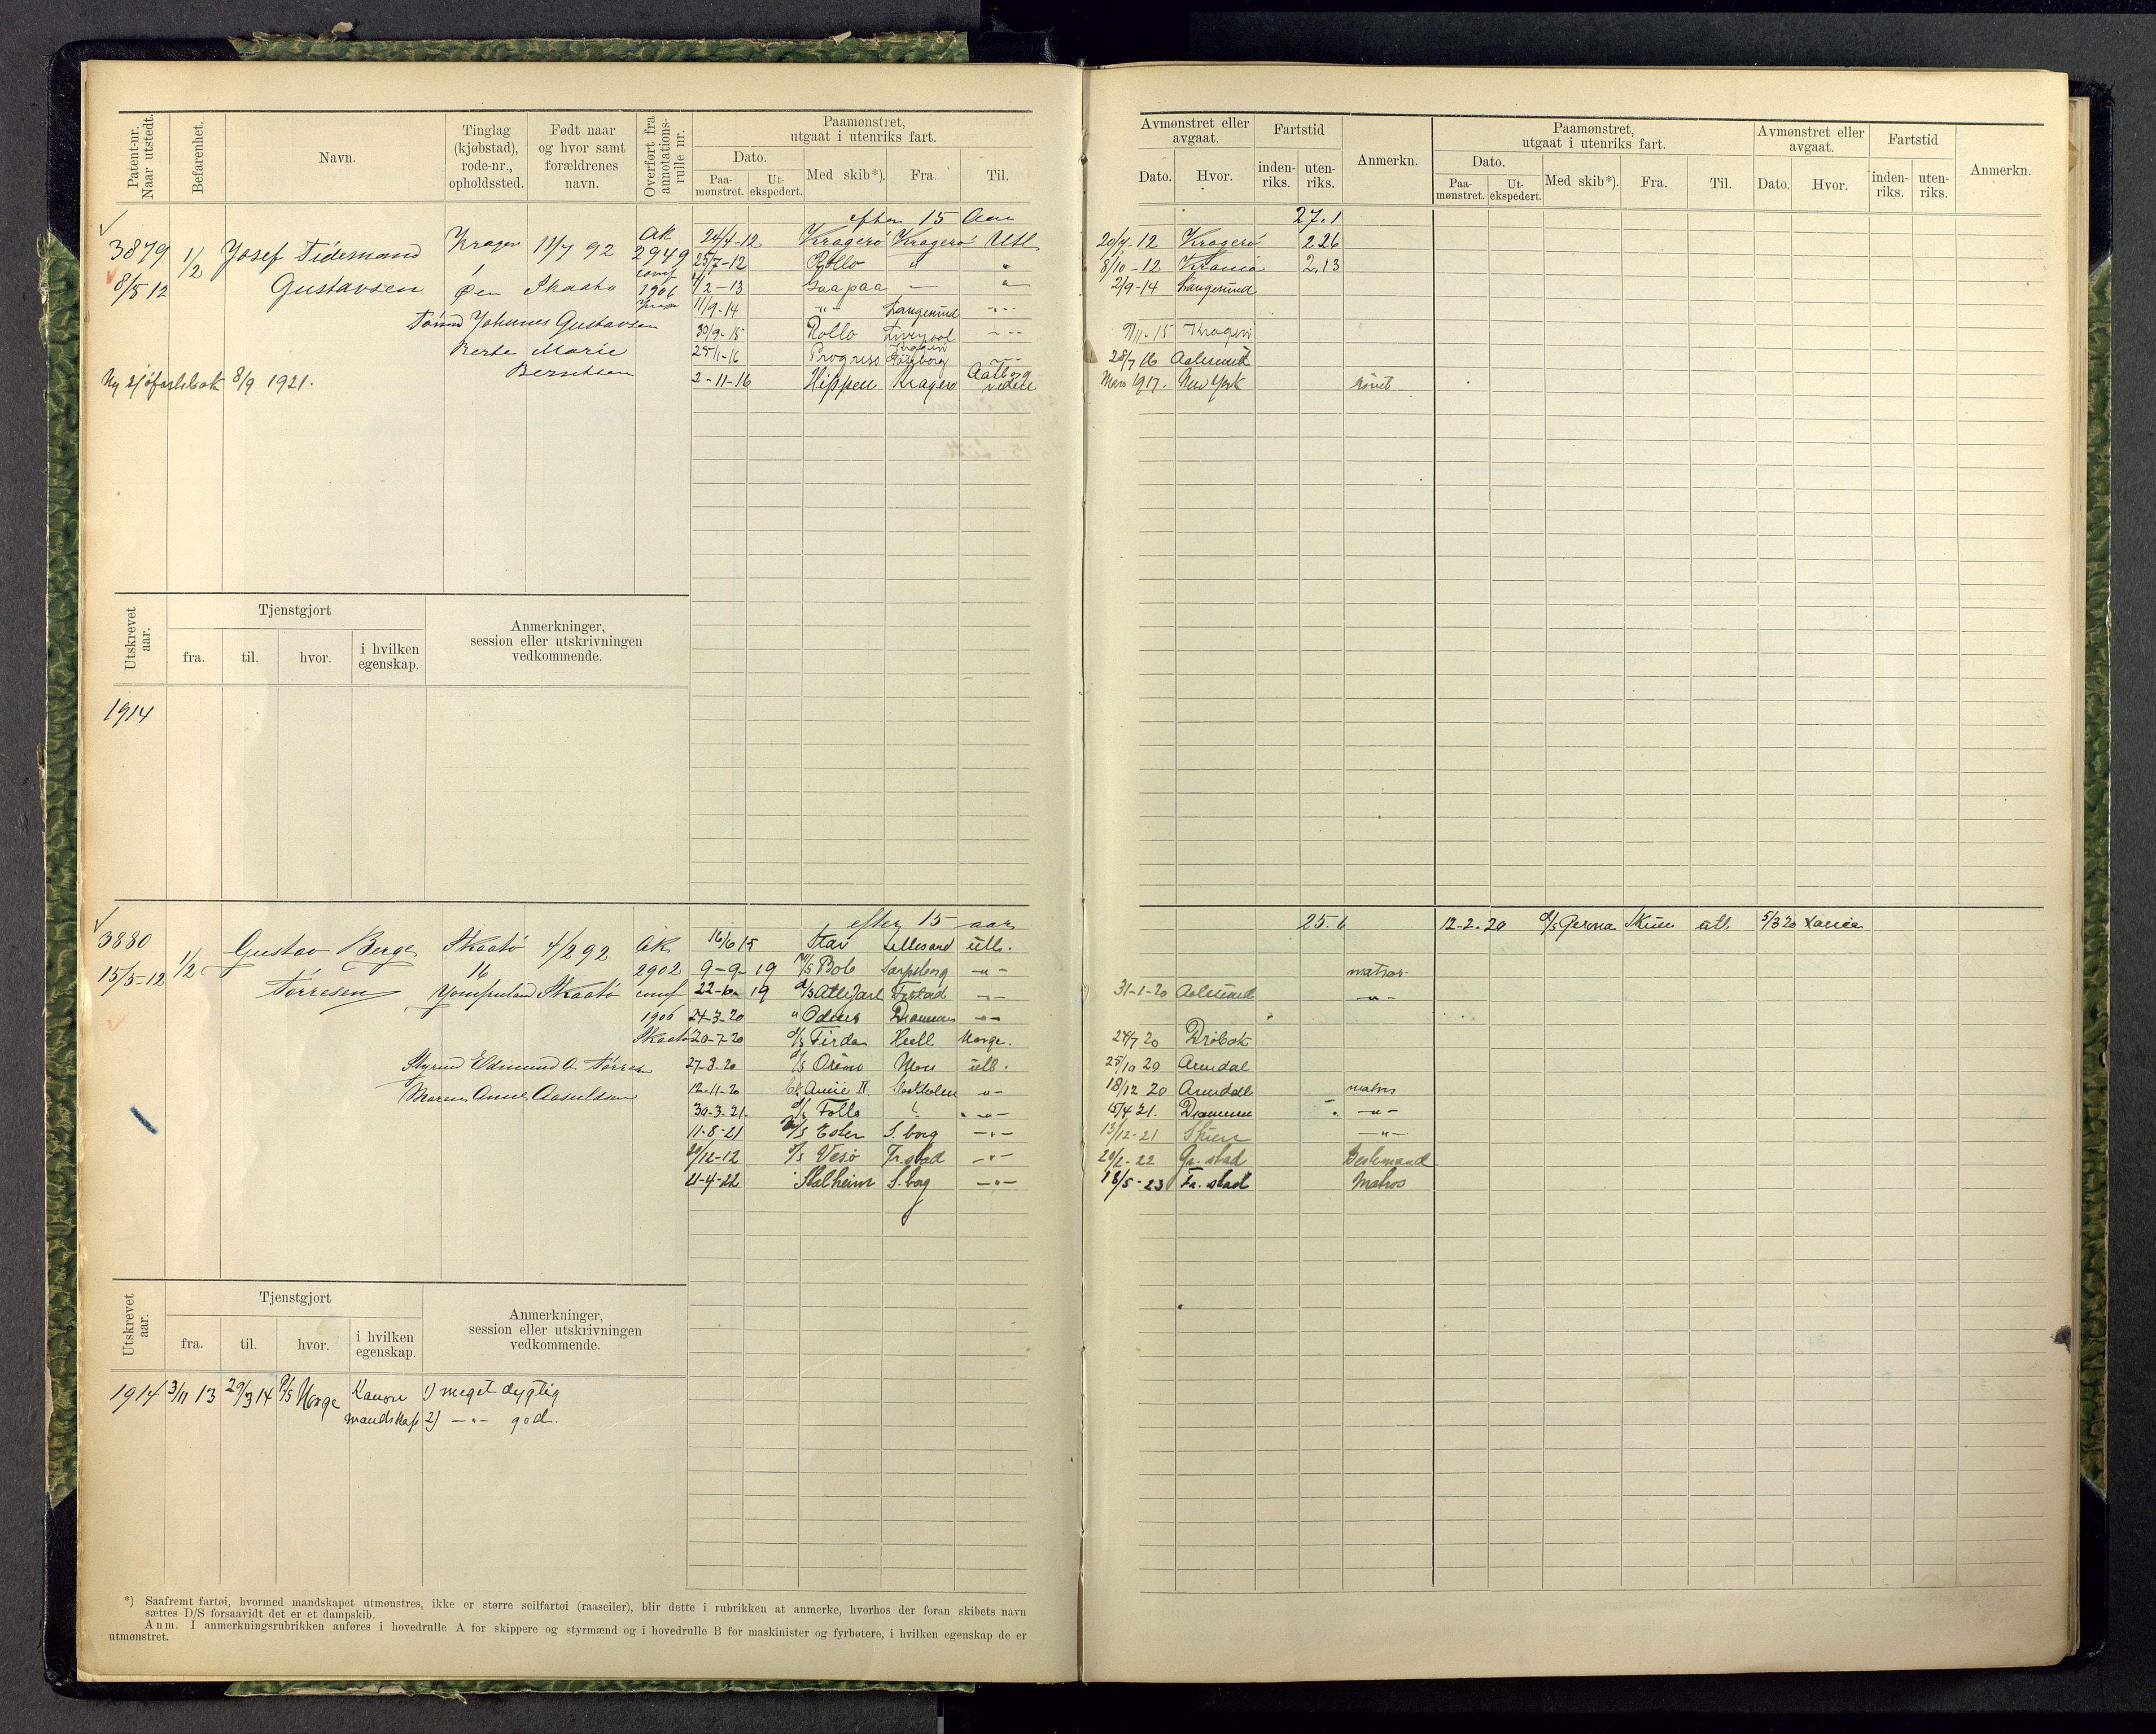 Patent-nr. Naar utstedt.
Befarenhet.
Navn.
Tinglag (kjøbstad), rode-nr., opholdssted.
Født naar og hvor samt forældrenes navn.
Overført fra annotations-rulle nr.
Paamønstret, utgaat i utenriks fart.
Dato.
Paa-mønstret.
Ut-ekspedert.
Med skib*).
Fra.
Til.
Avmønstret eller avgaat.
Dato.
Hvor.
Fartstid
inden-riks.
uten-riks.
Anmerkn.
Paamønstret, utgaat i utenriks fart.
Dato.
Paa-mønstret.
Ut-ekspedert.
Med skib*).
Fra.
Til.
Avmønstret eller avgaat.
Dato.
Hvor.
Fartstid
inden-riks.
uten-riks.
Anmerkn.
efter 15 Aar 27.1
3879 1/2 Josef Tidemand Kragerø 11/7 92 AK 24/4-12 Kragerø Kragerø Utl. 20/7-12 Kragerø 2.26
8/5 12 Gustavsen Øen Skaatø 2949 25/7-12 Rollo " " 8/10-12 Krania 2.13
1906 2-13 Guapaa — " 2/9-14 Langesund
11/9-14 -"- Langesund -"-
Johannes Gustavsen 30/9-15 Rollo Liverpool -"- 15 Kragerø
Berte Marie 25/1-16 Progress Kragerø Gøteborg -"- 28/7 16 Aalesund
Berntsen
Ny sjøfartsbok 8/9 1921. 2-11-16 Hippen Kragerø Aalborg videre Mars 1917. New York rømt
Utskrevet aar.
Tjenstgjort
fra.
til.
hvor.
i hvilken egenskap.
Anmerkninger, session eller utskrivningen vedkommende.
1914
efter 15 aar 25.6 12-2-20 d/s Gerona Skien utl. 5/3 20 Xania
3880 1/2 Gustav Berge Skaatø 4/2 92 AK 16/6 15 Stav Lillesand utl.
15/5-12 Tørresen 16 2902 9-9-19 M/S Bob Sarpsborg -"- matros
Jomfruland Skaatø 22-6-19 d/s Atle Jarl Frstad -"- 31-1-20 Aalesund -"-
1906 24-3-20 " Odins Drammen -"-
Skaatø 20-7-20 d/s Firda Hull Norge. 24/7 20 Drøbak
Styrmd Edmund A. Tørresen 27-8-20 d/s Moss utl. 25/10 20 Arendal
Maren Anne Aasuldsen 12-11-20 Annie II Stockholm -"- 18/12 20 Arendal matros
30-3-21 d/s Follo -"- 15/4 21. Drammen -"-
11-8-21 S. borg -"- 13/12-21 Skien -"-
20/12-12 d/s Vesø Fr.stad -"- 20/2-22 Gr. stad Bestemand
21-4-22 " Stalheim S. borg -"- 18/5-23 Fr. stad Matros
Utskrevet aar.
Tjenstgjort
fra.
til.
hvor.
i hvilken egenskap.
Anmerkninger, session eller utskrivningen vedkommende.
1914 3/11 13 29/3 14 P/S Norge Kanon 1) meget dygtig
mandskap 2) -"- god.
*) Saafremt fartøi, hvormed mandskapet utmønstres, ikke er større seilfartøi (raaseiler), blir dette i rubrikken at anmerke, hvorhos der foran skibets navn
sættes D/S forsaavidt det er et dampskib.
Anm. I anmerkningsrubrikken anføres i hovedrulle A for skippere og styrmænd og i hovedrulle B for maskinister og fyrbøtere, i hvilken egenskap de er
utmønstret.